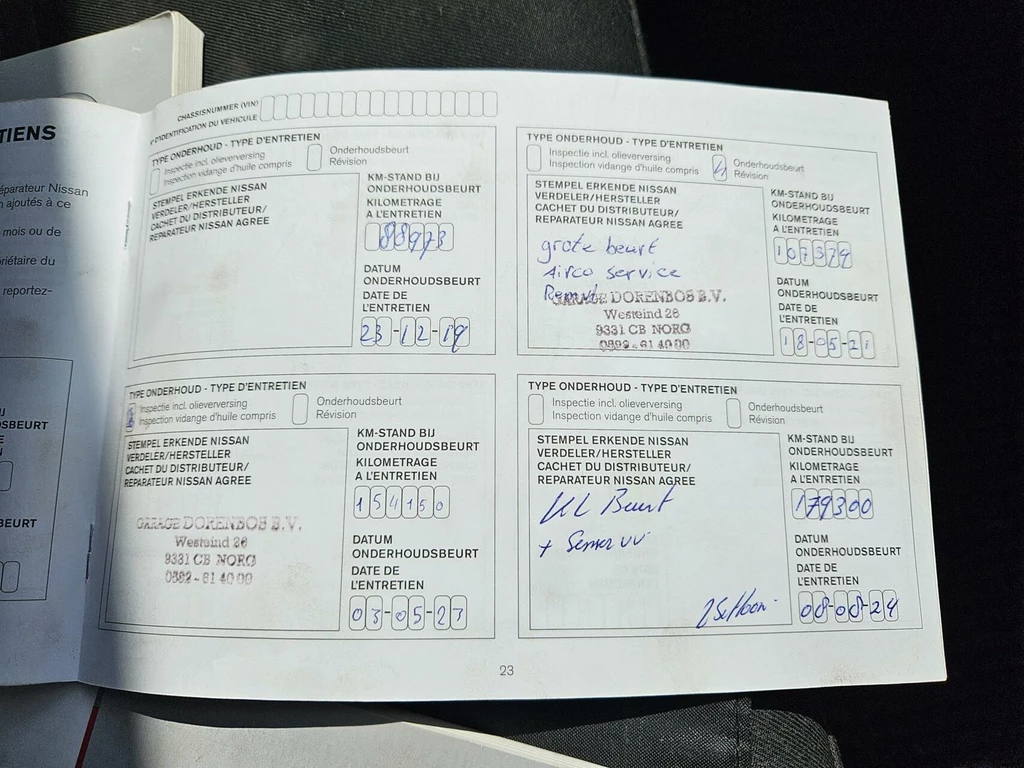 TIENS
éparateur Nissan
n ajoutés à ce
mois ou de
riétaire du
reportez-
SBEURT
BEURT
CHASSISNUMMER (VIN)
N° D'IDENTIFICATION DU VEHICULE
TYPE ONDERHOUD - TYPE D'ENTRETIEN
Inspectie incl. olieverversing
Inspection vidange d'huile compris
Onderhoudsbeurt
Révision
STEMPEL ERKENDE NISSAN
VERDELER/HERSTELLER
CACHET DU DISTRIBUTEUR/
REPARATEUR NISSAN AGREE
KM-STAND BIJ
ONDERHOUDSBEURT
KILOMETRAGE
A L'ENTRETIEN
88973
DATUM
ONDERHOUDSBEURT
DATE DE
L'ENTRETIEN
23-12-19
TYPE ONDERHOUD - TYPE D'ENTRETIEN
Inspectie incl. olieverversing
Inspection vidange d'huile compris
Onderhoudsbeurt
Révision
STEMPEL ERKENDE NISSAN
VERDELER/HERSTELLER
CACHET DU DISTRIBUTEUR/
REPARATEUR NISSAN AGREE
grote beurt
Airco service
GARAGE DORENBOS B.V.
Westeind 26
9331 CB NORG
0592-61 40 00
KM-STAND BIJ
ONDERHOUDSBEURT
KILOMETRAGE
A L'ENTRETIEN
107379
DATUM
ONDERHOUDSBEURT
DATE DE
L'ENTRETIEN
18-05-21
TYPE ONDERHOUD - TYPE D'ENTRETIEN
Inspectie incl. olieverversing
Inspection vidange d'huile compris
Onderhoudsbeurt
Révision
STEMPEL ERKENDE NISSAN
VERDELER/HERSTELLER
CACHET DU DISTRIBUTEUR/
REPARATEUR NISSAN AGREE
GARAGE DORENBOS B.V.
Westeind 26
9331 CB NORG
0592-61 40 00
KM-STAND BIJ
ONDERHOUDSBEURT
KILOMETRAGE
A L'ENTRETIEN
154150
DATUM
ONDERHOUDSBEURT
DATE DE
L'ENTRETIEN
03-05-23
TYPE ONDERHOUD - TYPE D'ENTRETIEN
Inspectie incl. olieverversing
Inspection vidange d'huile compris
Onderhoudsbeurt
Révision
STEMPEL ERKENDE NISSAN
VERDELER/HERSTELLER
CACHET DU DISTRIBUTEUR/
REPARATEUR NISSAN AGREE
KL Beurt
KM-STAND BIJ
ONDERHOUDSBEURT
KILOMETRAGE
A L'ENTRETIEN
179300
DATUM
ONDERHOUDSBEURT
DATE DE
L'ENTRETIEN
08-08-24
23